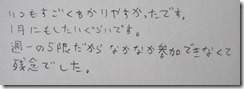 いつもすごくわかりやすかったです。
1月にもしたいぐらいです。
週一の5限だからなかなか参加できなくて
残念でした。